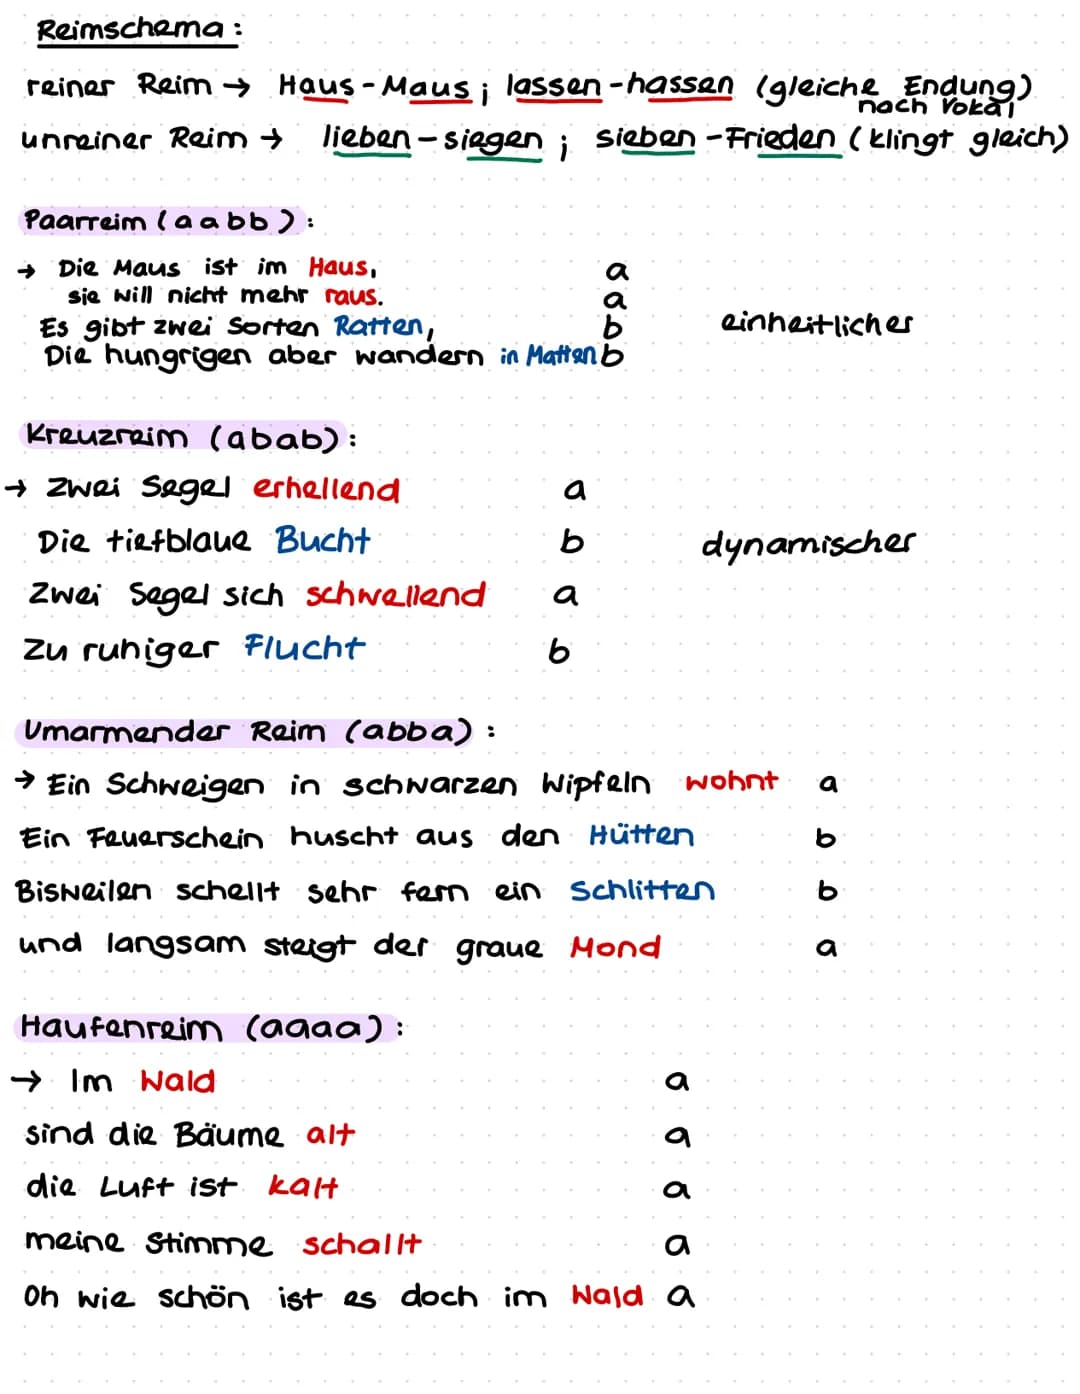 Reimschema:
reiner Reim → Haus-Maus; lassen-hassen (gleiche Endung)
nach Vokal
unreiner Reim → lieben-siegen; sieben-Frieden (klingt gleich)
Paarreim (aabb):
→ Die Maus ist im Haus, a
sie will nicht mehr raus. a
einheitlicher
Es gibt zwei Sorten Ratten, b
Die hungrigen aber wandern in Matten b
Kreuzreim (abab):
→ Zwei Segel erhellend a
Die tiefblaue Bucht b dynamischer
Zwei Segel sich schwellend a
Zu ruhiger Flucht b
Umarmender Reim (abba):
→ Ein Schweigen in schwarzen Wipfeln wohnt a
Ein Feuerschein huscht aus den Hütten b
Bisweilen schellt sehr fern ein Schlitten b
und langsam steigt der graue Mond a
Haufenreim (aaaa):
→ Im Wald a
sind die Bäume alt a
die Luft ist kalt a
meine Stimme schallt a
Oh wie schön ist es doch im Wald a